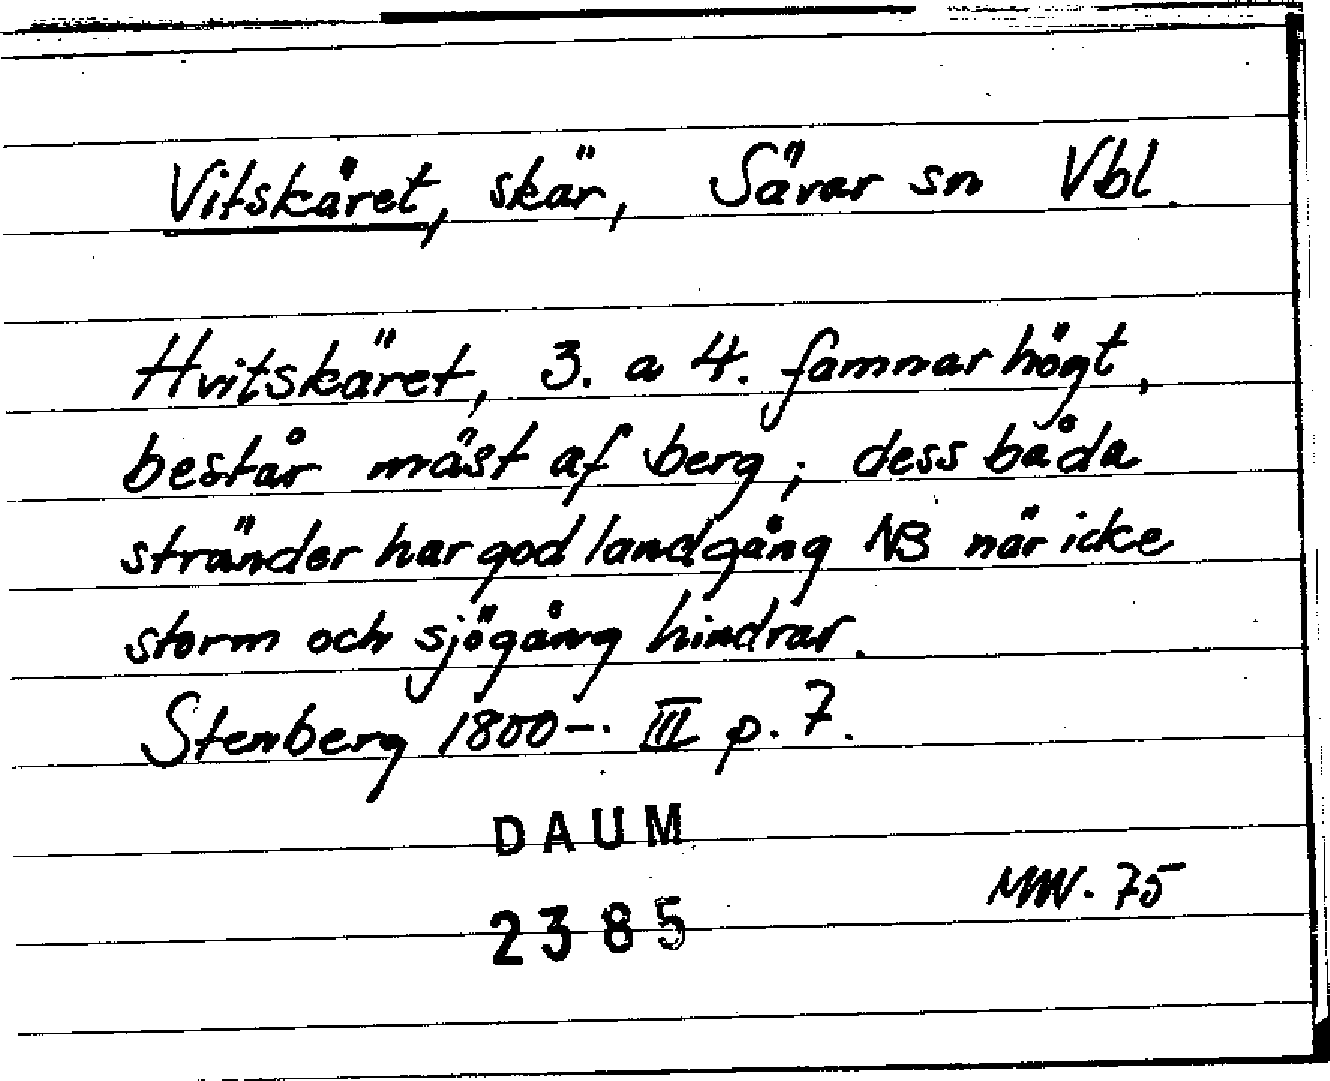 Vitskäret, skär, Sävar sn Vbl.
Hvitskäret, 3. a 4. famnar högt,
består mäst af berg; dess båda
stränder har god landgång NB när icke
storm och sjögång hindrar.
Stenberg 1800-. III p. 7.
DAUM
MW. 75
2385